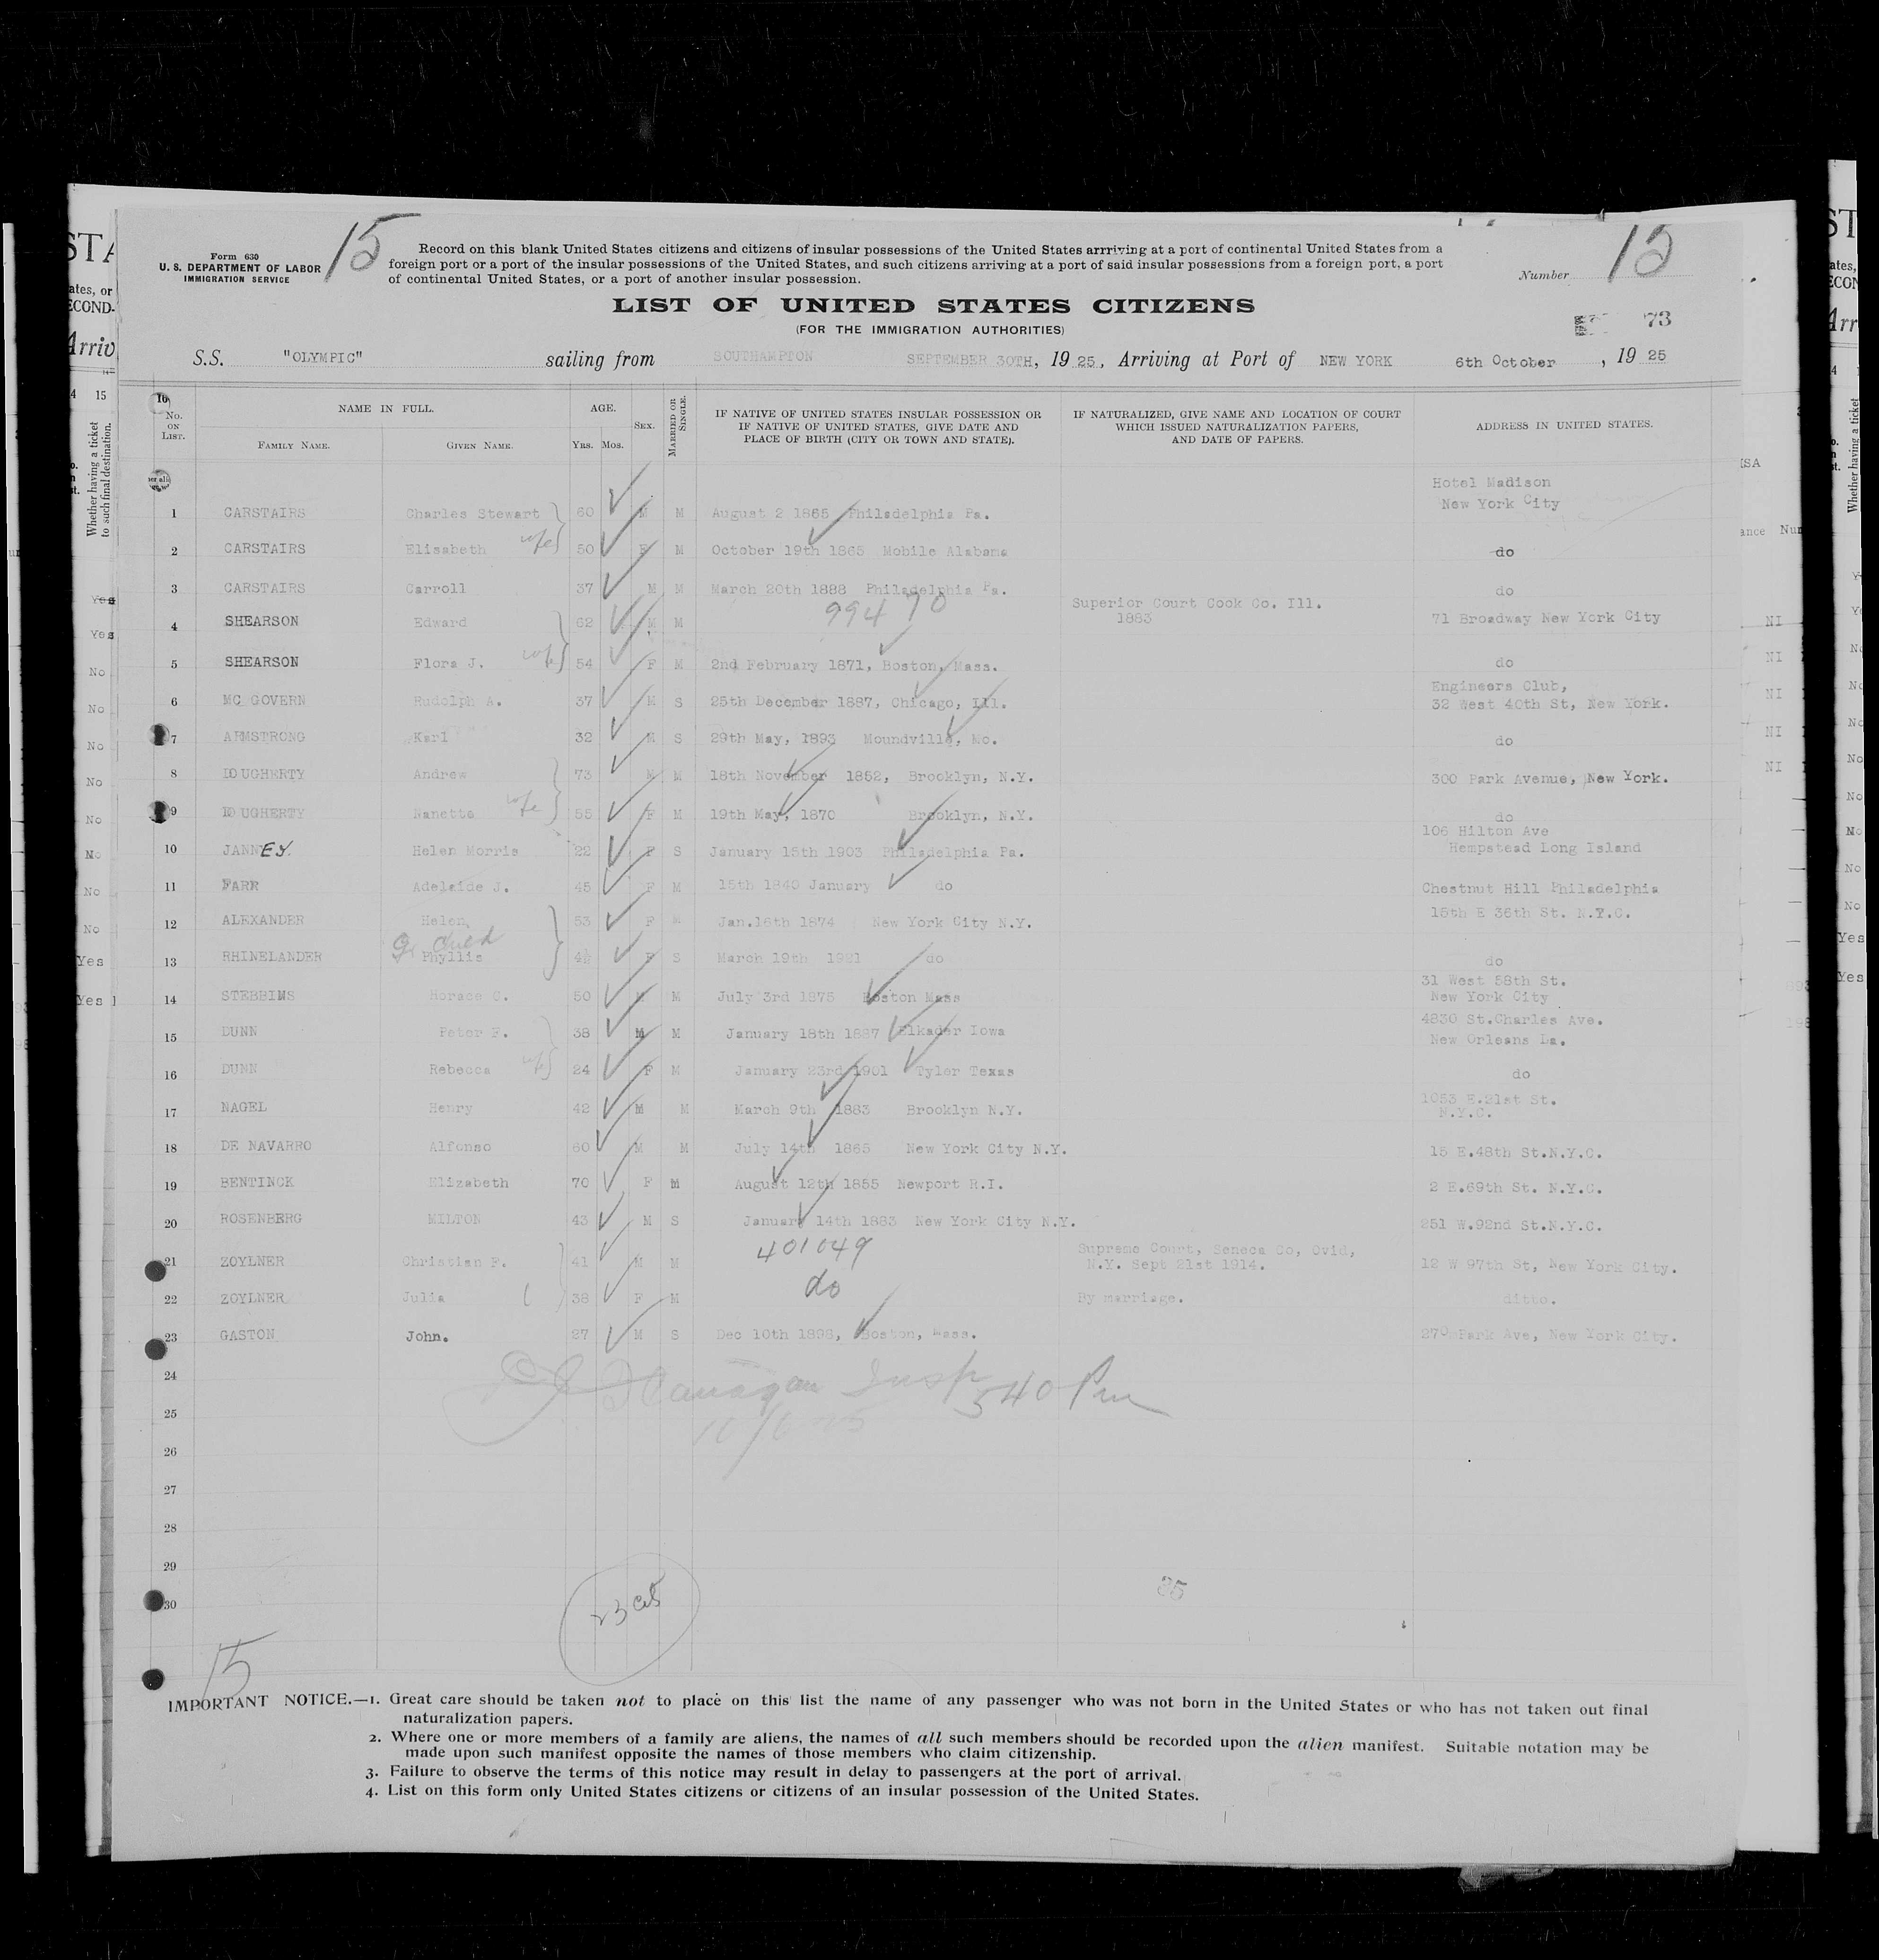 Form 630
U. S. DEPARTMENT OF LABOR
IMMIGRATION SERVICE
15
Record on this blank United States citizens and citizens of insular possessions of the United States arrriving at a port of continental United States from a
foreign port or a port of the insular possessions of the United States, and such citizens arriving at a port of said insular possessions from a foreign port, a port
of continental United States, or a port of another insular possession.
Number 15
LIST OF UNITED STATES CITIZENS
(FOR THE IMMIGRATION AUTHORITIES)
73
S.S. "OLYMPIC" sailing from SOUTHAMPTON SEPTEMBER 30TH, 19 25, Arriving at Port of NEW YORK 6th October , 19 25
No. ON LIST.
NAME IN FULL.
FAMILY NAME. GIVEN NAME.
AGE.
Yrs. Mos.
SEX.
MARRIED OR SINGLE.
IF NATIVE OF UNITED STATES INSULAR POSSESSION OR
IF NATIVE OF UNITED STATES, GIVE DATE AND
PLACE OF BIRTH (CITY OR TOWN AND STATE).
IF NATURALIZED, GIVE NAME AND LOCATION OF COURT
WHICH ISSUED NATURALIZATION PAPERS,
AND DATE OF PAPERS.
ADDRESS IN UNITED STATES.
Hotel Madison
1 CARSTAIRS Charles Stewart 60 M M August 2 1865 Philadelphia Pa. New York City
2 CARSTAIRS Elisabeth wife 50 F M October 19th 1865 Mobile Alabama do
3 CARSTAIRS Carroll 37 M M March 20th 1888 Philadelphia Pa. do
99470 Superior Court Cook Co. Ill.
4 SHEARSON Edward 62 M M 1883 71 Broadway New York City
5 SHEARSON Flora J. wife 54 F M 2nd February 1871, Boston, Mass. do
Engineers Club,
6 MC GOVERN Rudolph A. 37 M S 25th December 1887, Chicago, Ill. 32 West 40th St, New York.
7 ARMSTRONG Karl 32 M S 29th May, 1893 Moundville, Mo. do
8 DOUGHERTY Andrew 73 M M 18th November 1852, Brooklyn, N.Y. 300 Park Avenue, New York.
9 DOUGHERTY Nanette wife 55 F M 19th May, 1870 Brooklyn, N.Y. do
106 Hilton Ave
10 JANNEY. Helen Morris 22 F S January 15th 1903 Philadelphia Pa. Hempstead Long Island
11 FARR Adelaide J. 45 F M 15th 1840 January do Chestnut Hill Philadelphia
12 ALEXANDER Helen 53 F M Jan.16th 1874 New York City N.Y. 15th E 36th St. N.Y.C.
13 RHINELANDER Phyllis F S March 19th 1921 do do
31 West 58th St.
14 STEBBINS Horace C. 50 M M July 3rd 1875 Boston Mass New York City
4830 St.Charles Ave.
15 DUNN Peter F. 38 M M January 18th 1887 Elkader Iowa New Orleans La.
16 DUNN Rebecca wife 24 F M January 23rd 1901 Tyler Texas do
1053 E.21st St.
17 NAGEL Henry 42 M M March 9th 1883 Brooklyn N.Y. N.Y.C.
18 DE NAVARRO Alfonso 60 M M July 14th 1865 New York City N.Y. 15 E.48th St.N.Y.C.
19 BENTINCK Elizabeth 70 F M August 12th 1855 Newport R.I. 2 E.69th St. N.Y.C.
20 ROSENBERG MILTON 43 M S January 14th 1883 New York City N.Y. 251 W.92nd St.N.Y.C.
401049 Supreme Court, Seneca Co, Ovid,
21 ZOYLNER Christian F. 41 M M N.Y. Sept 21st 1914. 12 W 97th St, New York City.
22 ZOYLNER Julia 38 F M do By marriage. ditto.
23 GASTON John. 27 M S Dec 10th 1898, Boston, Mass. 270 Park Ave, New York City.
24
Flanagan Insp 540 Pm
25
10/6/25
26
27
28
29
30
25
15
IMPORTANT NOTICE.—1. Great care should be taken not to place on this list the name of any passenger who was not born in the United States or who has not taken out final
naturalization papers.
2. Where one or more members of a family are aliens, the names of all such members should be recorded upon the alien manifest. Suitable notation may be
made upon such manifest opposite the names of those members who claim citizenship.
3. Failure to observe the terms of this notice may result in delay to passengers at the port of arrival.
4. List on this form only United States citizens or citizens of an insular possession of the United States.